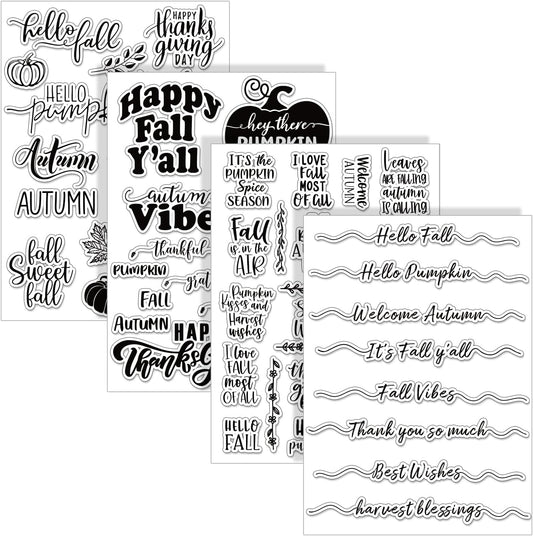 hello fall
HAPPY
thanks
giving
DAY
HELLO
Autumn
AUTUMN
fall
Sweet
fall
Happy
Fall
Y'all
hey there
PUMPKIN
autumn
Vibe
thankful
PUMPKIN
FALL
AUTUMN
HAPP
IT'S the
PUMPKIN
Spice
SEASON
I LOVE
Fall
MOST
OF ALL
Welcome
AUTUMN
Leaves
ARE FALLING
autumn
IS CALLING
Fall
IS IN THE
AIR
Pumpkin
Kisses and
Harvest
wishes
I love
FALL
most
OF ALL
HELLO
FALL
Hello Fall
Hello Pumpkin
Welcome Autumn
It's Fall y'all
Fall Vibes
Thank you so much
Best Wishes
harvest blessings